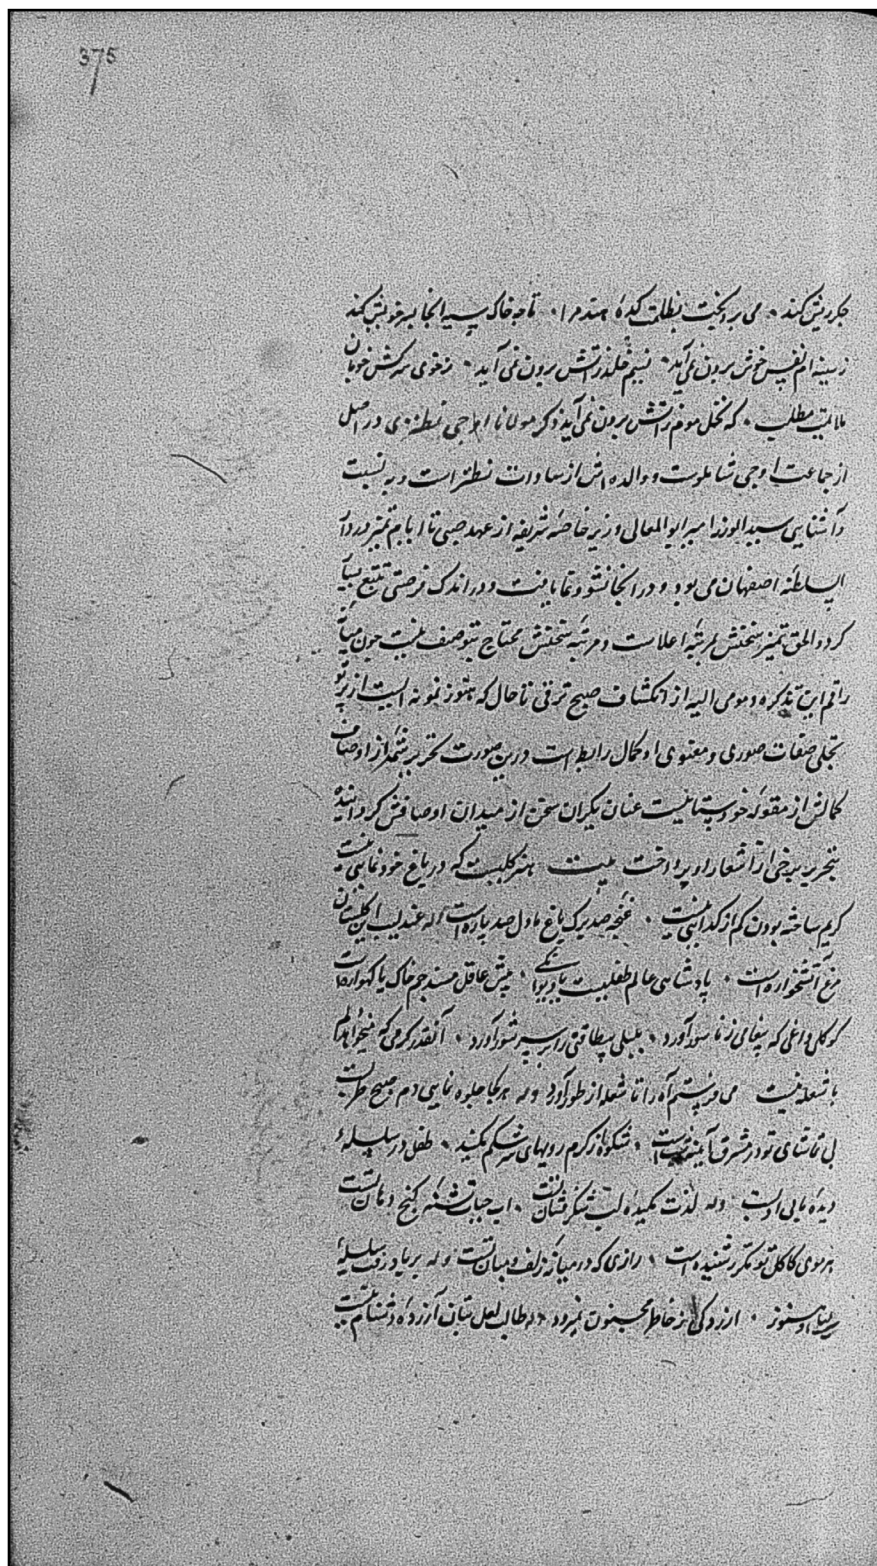 375
جکر ریش کند ٠ می برد بخت بظلمت کدهٔ هند مرا ٠ تا چه خاک سیه آنجا بسر خویش کند
ز سینه ام نفس خوش برون نمی آید ٠ نسیم خلد ز آتش برون نمی آید ٠ ز خوی سرکش خوبان
ملایمت مطلب ٠ که نخل موم ز آتش برون نمی آید ذکر مولانا اوجی نطنزی در اصل
از جماعت اوجی شاملوست و والده اش از سادات نطنز است و به نسبت
و آشنایی سید الوزرا میر ابو المعالی وزیر خاصه شریفه از عهد صبی تا ایام تمیز در دار
السلطنه اصفهان می بود و در انجا نشو و نما یافت و در اندک فرصتی تتبع بسیار
کرد و الحق تمیز سخنش بمرتبهٔ اعلاست و مرتبه سخنش محتاج بتوصیف نیست چون میانه
راقم این تذکره و مومی الیه از انکشاف صبح ترقی تا حال که هنوز نمونه ایست از پرتو
تجلی صفات صوری و معنوی او کمال رابطه است درین صورت تحریر شمه از اوصاف
کمالش از مقوله خودستاییست عنان یکران سخن از میدان اوصافش گردانیده
بتحریر برخی از اشعار او پرداخت بیت هنر کلیست که در باغ خود نمایی نیست
کریم ساخته بودن کم از کدایی نیست ٠ غنچه صد برک باغ ما دل صد پاره است ٠ عندلیب این کلستان
مرغ آتشخواره است ٠ پادشاهی عالم طفلیست یا دیوانکی ٠ پیش عاقل مسند جم خاک یا کهواره است
کو کل داغی که پیغامی ز ما سور آورد ٠ بلبلی بیطاقتی را بر سر شور آورد ٠ آنقدر کرمی که میخواهد دلم
با شعله نیست می فرستم آه را تا شعله از طور آورد وله هر کجا جلوه نمایی دم صبح طربست
بی تماشای تو در مشرق آیینه شبست ٠ شکوه از کرم رویهای سرشکم مکنید ٠ طفل در سلسلهٔ
دیده ما بی ادبست وله لذت مکیده لب شکرفشان تست ٠ اب حیات تشنه کنج دهان تست
هر موی کاکل تو مکرر شنیده است ٠ رازی که در میانه زلف و میان تست وله بر باد رفت سلسلهٔ
لیلی و هنوز ٠ ازردکی ز خاطر مجنون نمیرود وله طالب لعل بتان آزردهٔ دشنام نیست